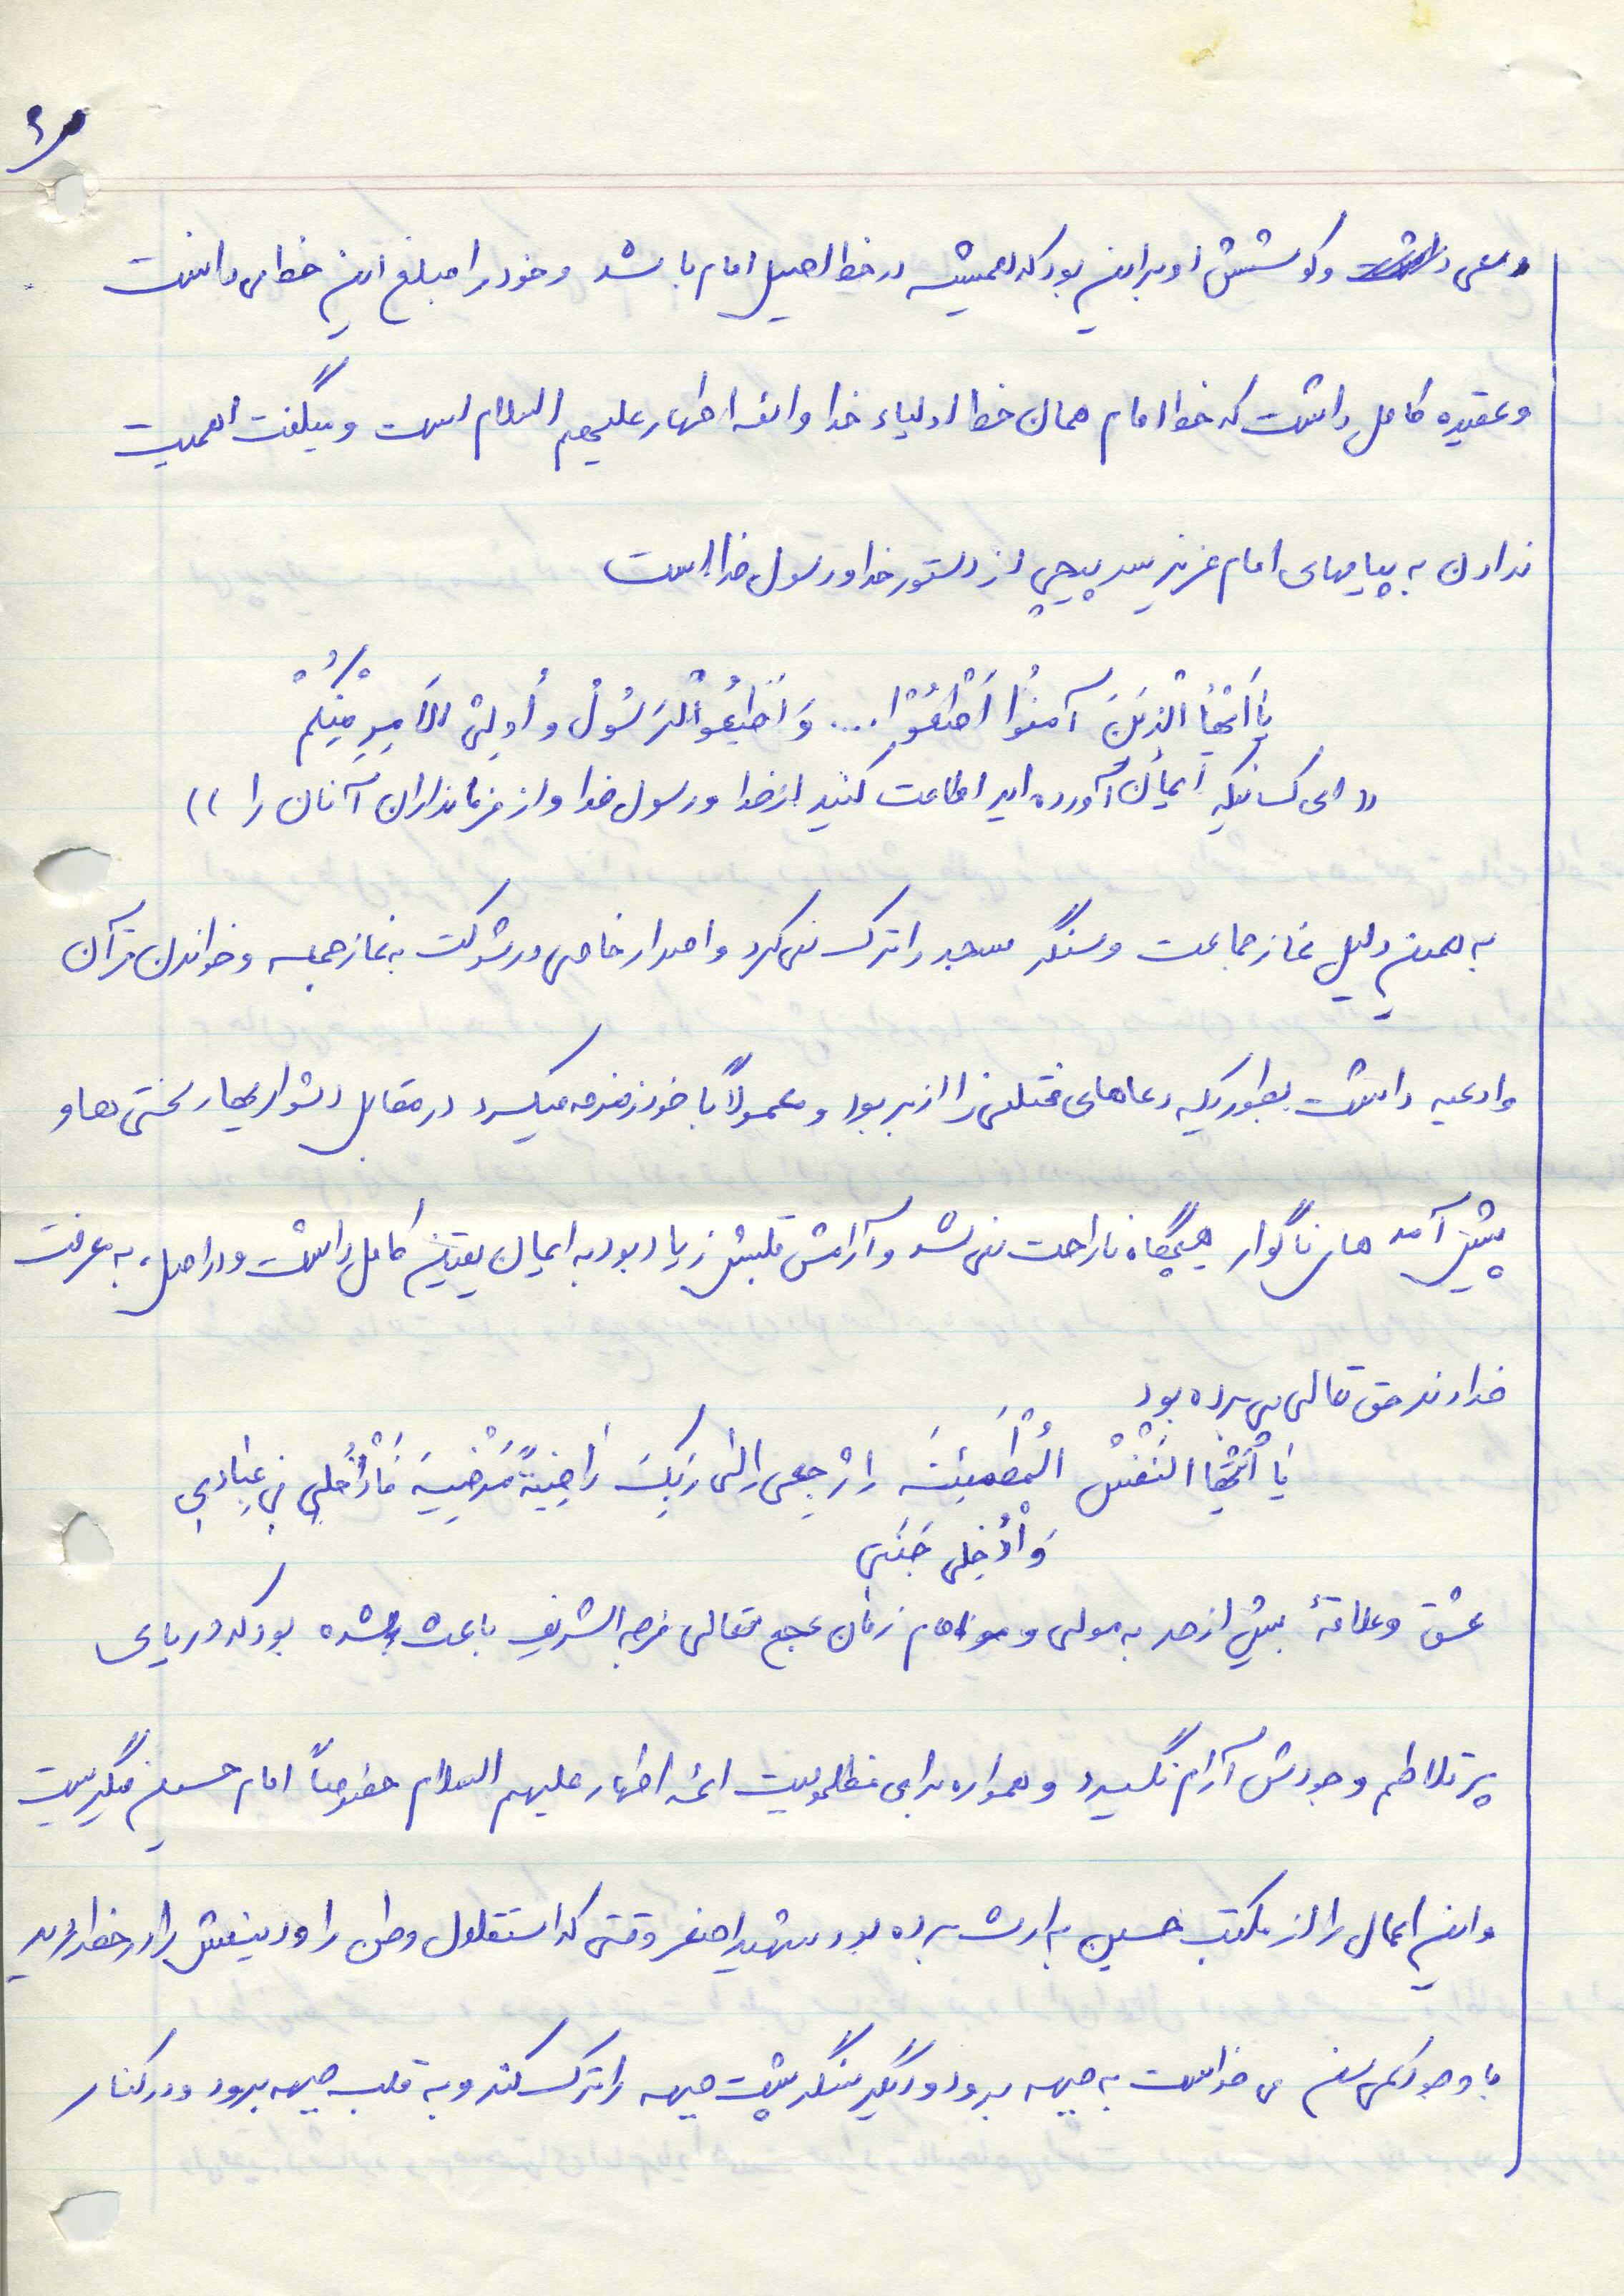 وسعی و کوشش او براین بود که همیشه در خط اصیل امام باشد و خود را مبلغ این خط می دانست
و عقیده کامل داشت که خط امام همان خط اولیاء خدا و ائمه اطهار علیهم السلام است و میگفت اهمیت
ندادن به پیامهای امام عزیز سرپیچی از دستور خدا و رسول خدا است
یَا اَیُّهَا الَّذینَ آمَنُوا اَطیعُوا .... وَ اَطیعُوا الْرَسُولْ و اُولِی الاَمِرِ مِنْکُمْ
(( ای کسانیکه ایمان آورده اید اطاعت کنید از خدا و رسول خدا و از فرمانداران آنان را ))
به همین دلیل نماز جماعت و سنگر مسجد را ترک نمی کرد و اصرار خاصی در شرکت به نماز جمعه و خواندن قرآن
و ادعیه داشت بطوریکه دعاهای مختلفی را از بر بود و معمولاً با خود زمزمه میکرد در مقابل دشواریها و سختی ها و
پیش آمد های ناگوار هیچگاه ناراحت نمی شد و آرامش قلبیش زیاد بود به ایمان یقین کامل داشت و در اصل، به معرفت
خداوند حق تعالی پی برده بود
یَا اَیَّتُهَا النَفْسُ الْمُطْمَئِنَّه اِرْجِعی اِلی رَبِّکَ رَاضِیَةً مَرْضِیَه فَادْخُلی فی عِبَادی
وَادْخُلی جَنَّتی
عشق و علاقهٔ بیش از حد به مولی و امام زمان عجع تعالی فرجه الشریف باعث شده بود که دریای
پر تلاطم وجودش آرام نگیرد و همواره برای مظلومیت ائمه اطهار علیهم السلام خصوصاً امام حسین میگریست
و این اعمال را از مکتب حسین به ارث برده بود شهید اصغر وقتی که استقلال وطن را و دینش را در خطر دید
با وجود کمی سن می خواست به جبهه برود و دیگر سنگر پشت جبهه را ترک کند و به قلب جبهه برود و در کنار